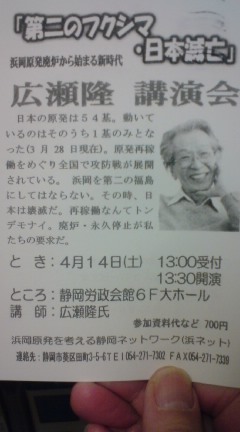 「第二のフクシマ
・日本滅亡」
浜岡原発廃炉から始まる新時代
広瀬隆 講演会
日本の原発は５４基。動いて
いるのはそのうち１基のみとな
った(３月 28 日現在)。原発再稼
働をめぐり全国で攻防戦が展開
されている。 浜岡を第二の福島
にしてはならない。その時、日
本は壊滅だ。再稼働なんてトン
デモナイ。廃炉・永久停止が私
たちの要求だ。
と き：４月１４日(土) 13:00受付
13:30開演
ところ：静岡労政会館６Ｆ大ホール
講 師：広瀬隆氏
参加資料代など 700円
浜岡原発を考える静岡ネットワーク(浜ネット)
連絡先：静岡市葵区田町3-5-6TEl054-271-7302 FAX054-271-7339